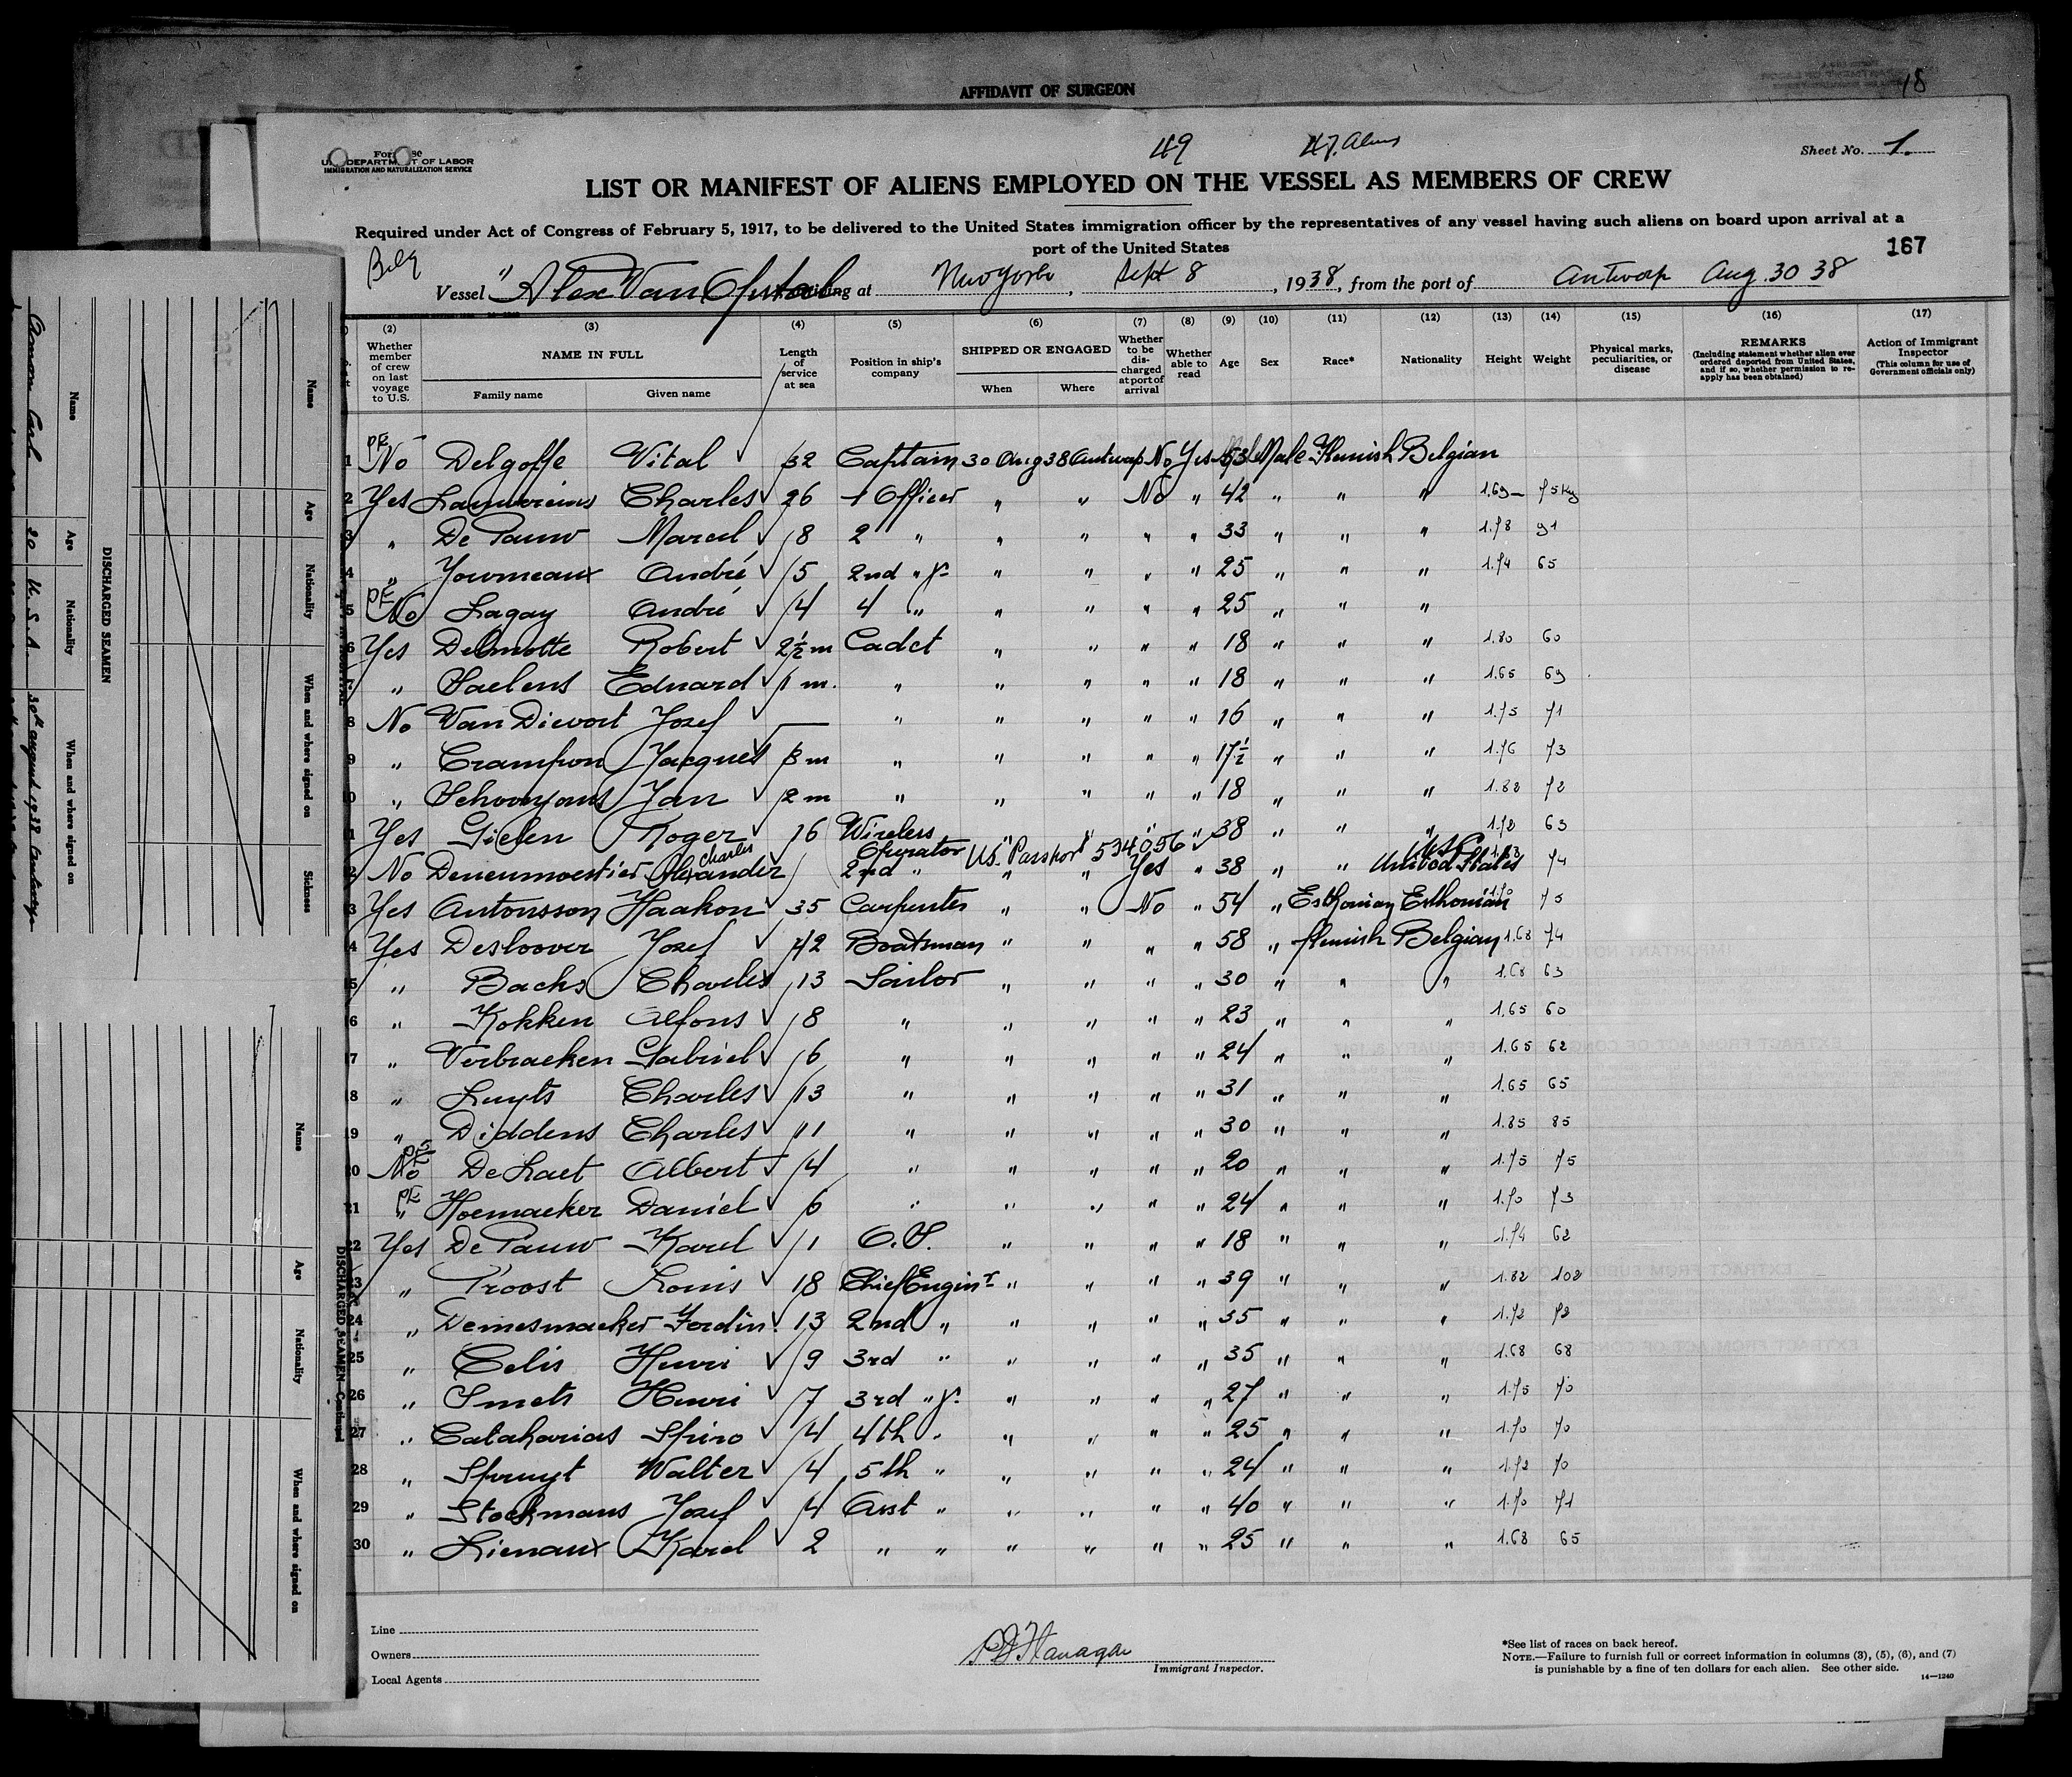 AFFIDAVIT OF SURGEON
18
DEPARTMENT OF LABOR
IMMIGRATION AND NATURALIZATION SERVICE
49
47. Aliens
Sheet No. 1.
LIST OR MANIFEST OF ALIENS EMPLOYED ON THE VESSEL AS MEMBERS OF CREW
Required under Act of Congress of February 5, 1917, to be delivered to the United States immigration officer by the representatives of any vessel having such aliens on board upon arrival at a
port of the United States
167
Belg
Vessel "Alex Van Opstal arriving at New York, Sept 8, 1938, from the port of Antwerp Aug. 30 38
(2) (3) (4) (5) (6) (7) (8) (9) (10) (11) (12) (13) (14) (15) (16) (17)
Whether member of crew on last voyage to U.S. NAME IN FULL Family name Given name Length of service at sea Position in ship's company SHIPPED OR ENGAGED When Where Whether to be discharged at port of arrival Whether able to read Age Sex Race* Nationality Height Weight Physical marks, peculiarities, or disease REMARKS (Including statement whether alien ever ordered deported from United States, and if so, whether permission to reapply has been obtained) Action of Immigrant Inspector (This column for use of Government officials only)
1 PE No Delgoffe Vital 32 Captain 30 Aug 38 Antwerp No Yes 53 Male Flemish Belgian
2 Yes Lauwereins Charles 26 1 Officer " " No " 42 " " " 1.69 75 kg
3 " De Pauw Marcel 8 2 " " " " " 33 " " " 1.78 91
4 " Yourneaux André 5 2nd " jr " " " " 25 " " " 1.74 65
5 PE No Lagay André 4 4 " " " " " 25 " " "
6 Yes Delmotte Robert 2½ m Cadet " " " " 18 " " " 1.80 60
7 " Saelens Eduard 1 m. " " " " " 18 " " " 1.65 69
8 No Van Dievort Jozef — " " " " " 16 " " " 1.75 71
9 " Crampon Jacques 3 m " " " " " 17½ " " " 1.76 73
10 " Schooyans Jan 2 m " " " " " 18 " " " 1.82 72
11 Yes Gielen Roger 16 Wireless Operator " " " " 38 " " " 1.72 63
12 No Deneumoestier Alexander Charles 2nd " US. Passport 534056 " " Yes " 38 " " United States USC 1.73 74
13 Yes Antonsson Haakon 35 Carpenter " " No " 54 " Esthonian Esthonian 1.70 75
14 Yes Desloover Jozef 42 Boatsman " " " " 58 " Flemish Belgian 1.68 74
15 " Backs Charles 13 Sailor " " " " 30 " " " 1.68 63
16 " Kokken Alfons 8 " " " " " 23 " " " 1.65 60
17 " Verbraeken Gabriel 6 " " " " " 24 " " " 1.65 62
18 " Luyts Charles 13 " " " " " 31 " " " 1.65 65
19 " Diddens Charles 11 " " " " " 30 " " " 1.85 85
20 PE No De Laet Albert 4 " " " " " 20 " " " 1.75 75
21 PE " Hoemaeker Daniel 6 " " " " " 24 " " " 1.70 73
22 Yes De Pauw Karel 1 O.S. " " " " 18 " " " 1.74 62
23 " Troost Louis 18 Chief Enginr " " " " 39 " " " 1.82 102
24 " Demesmaeker Ferdin. 13 2nd " " " " " 35 " " " 1.72 72
25 " Celis Henri 9 3rd " " " " " 35 " " " 1.68 68
26 " Smets Henri 7 3rd " jr. " " " " 27 " " " 1.75 70
27 " Cataharias Spiro 4 4th " " " " " 25 " " " 1.70 70
28 " Spruyt Walter 4 5th " " " " " 24 " " " 1.72 70
29 " Stockmans Jozef 4 Asst " " " " " 40 " " " 1.70 71
30 " Lienaux Karel 2 " " " " " " 25 " " " 1.68 65
Line
Owners
Local Agents
Immigrant Inspector.
*See list of races on back hereof.
NOTE.—Failure to furnish full or correct information in columns (3), (5), (6), and (7)
is punishable by a fine of ten dollars for each alien. See other side.
14—1240
DISCHARGED SEAMEN
Name Age Nationality When and where signed on
Carl 20 U. S. A. 30th august 1938
Name Age Nationality When and where signed on Sickness
DISCHARGED SEAMEN—Continued
Name Age Nationality When and where signed on